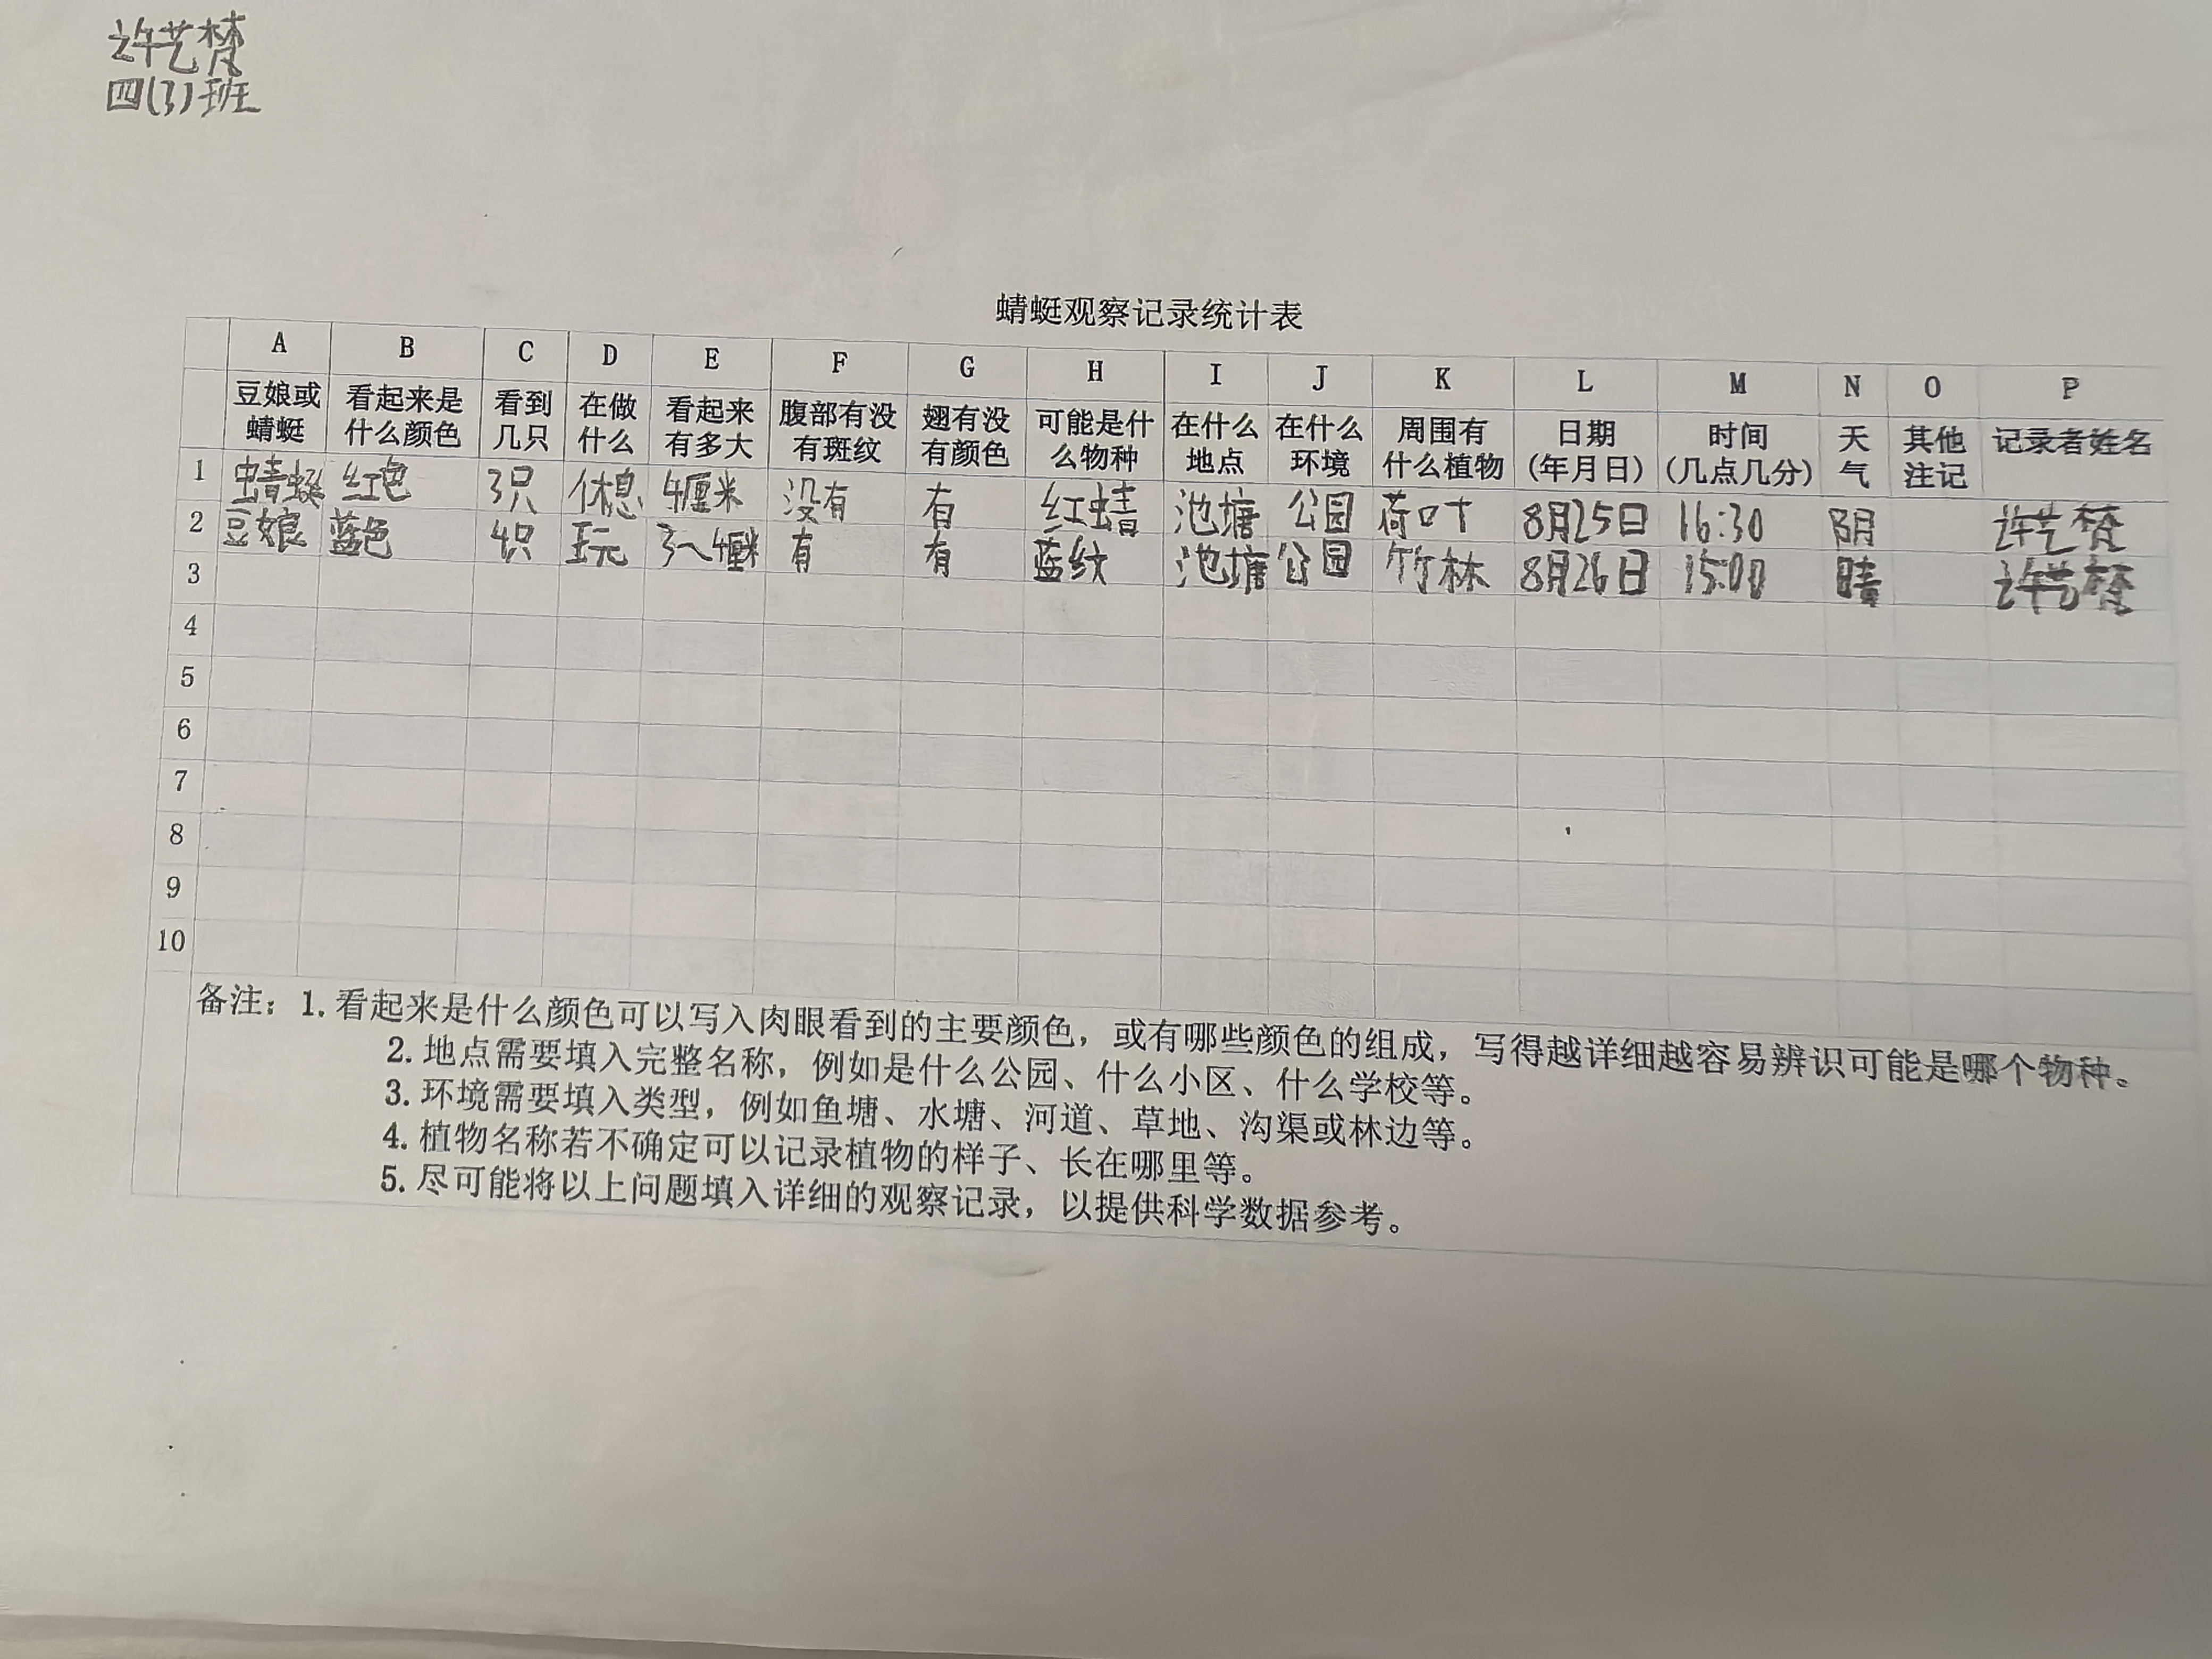 许艺梵
四(3)班
蜻蜓观察记录统计表
A B C D E F G H I J K L M N O P
豆娘或蜻蜓 看起来是什么颜色 看到几只 在做什么 看起来有多大 腹部有没有斑纹 翅有没有颜色 可能是什么物种 在什么地点 在什么环境 周围有什么植物 日期(年月日) 时间(几点几分) 天气 其他注记 记录者姓名
1 蜻蜓 红色 3只 休息 4厘米 没有 有 红蜻 池塘 公园 荷叶 8月25日 16:30 阴 许艺梵
2 豆娘 蓝色 4只 玩 3~4厘米 有 有 蓝纹 池塘 公园 竹林 8月26日 15:00 晴 许艺梵
3
4
5
6
7
8
9
10
备注：1.看起来是什么颜色可以写入肉眼看到的主要颜色，或有哪些颜色的组成，写得越详细越容易辨识可能是哪个物种。
2.地点需要填入完整名称，例如是什么公园、什么小区、什么学校等。
3.环境需要填入类型，例如鱼塘、水塘、河道、草地、沟渠或林边等。
4.植物名称若不确定可以记录植物的样子、长在哪里等。
5.尽可能将以上问题填入详细的观察记录，以提供科学数据参考。